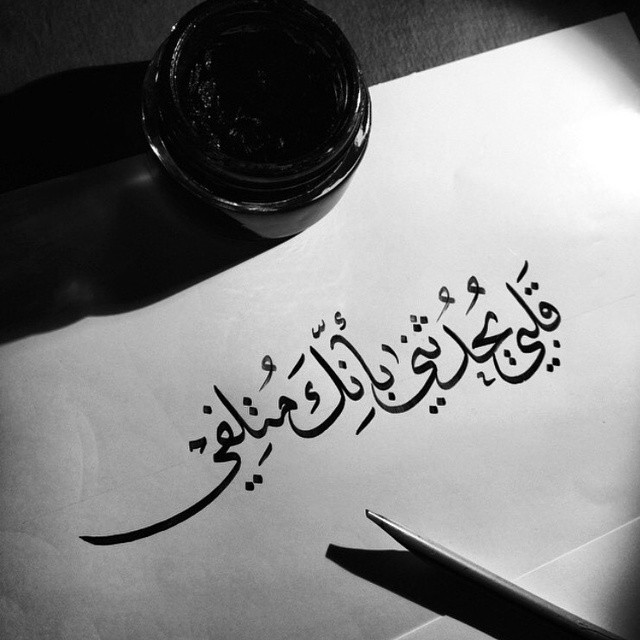 قَلبي يُحَدُثُني بِأَنَّكَ مُتلِفي